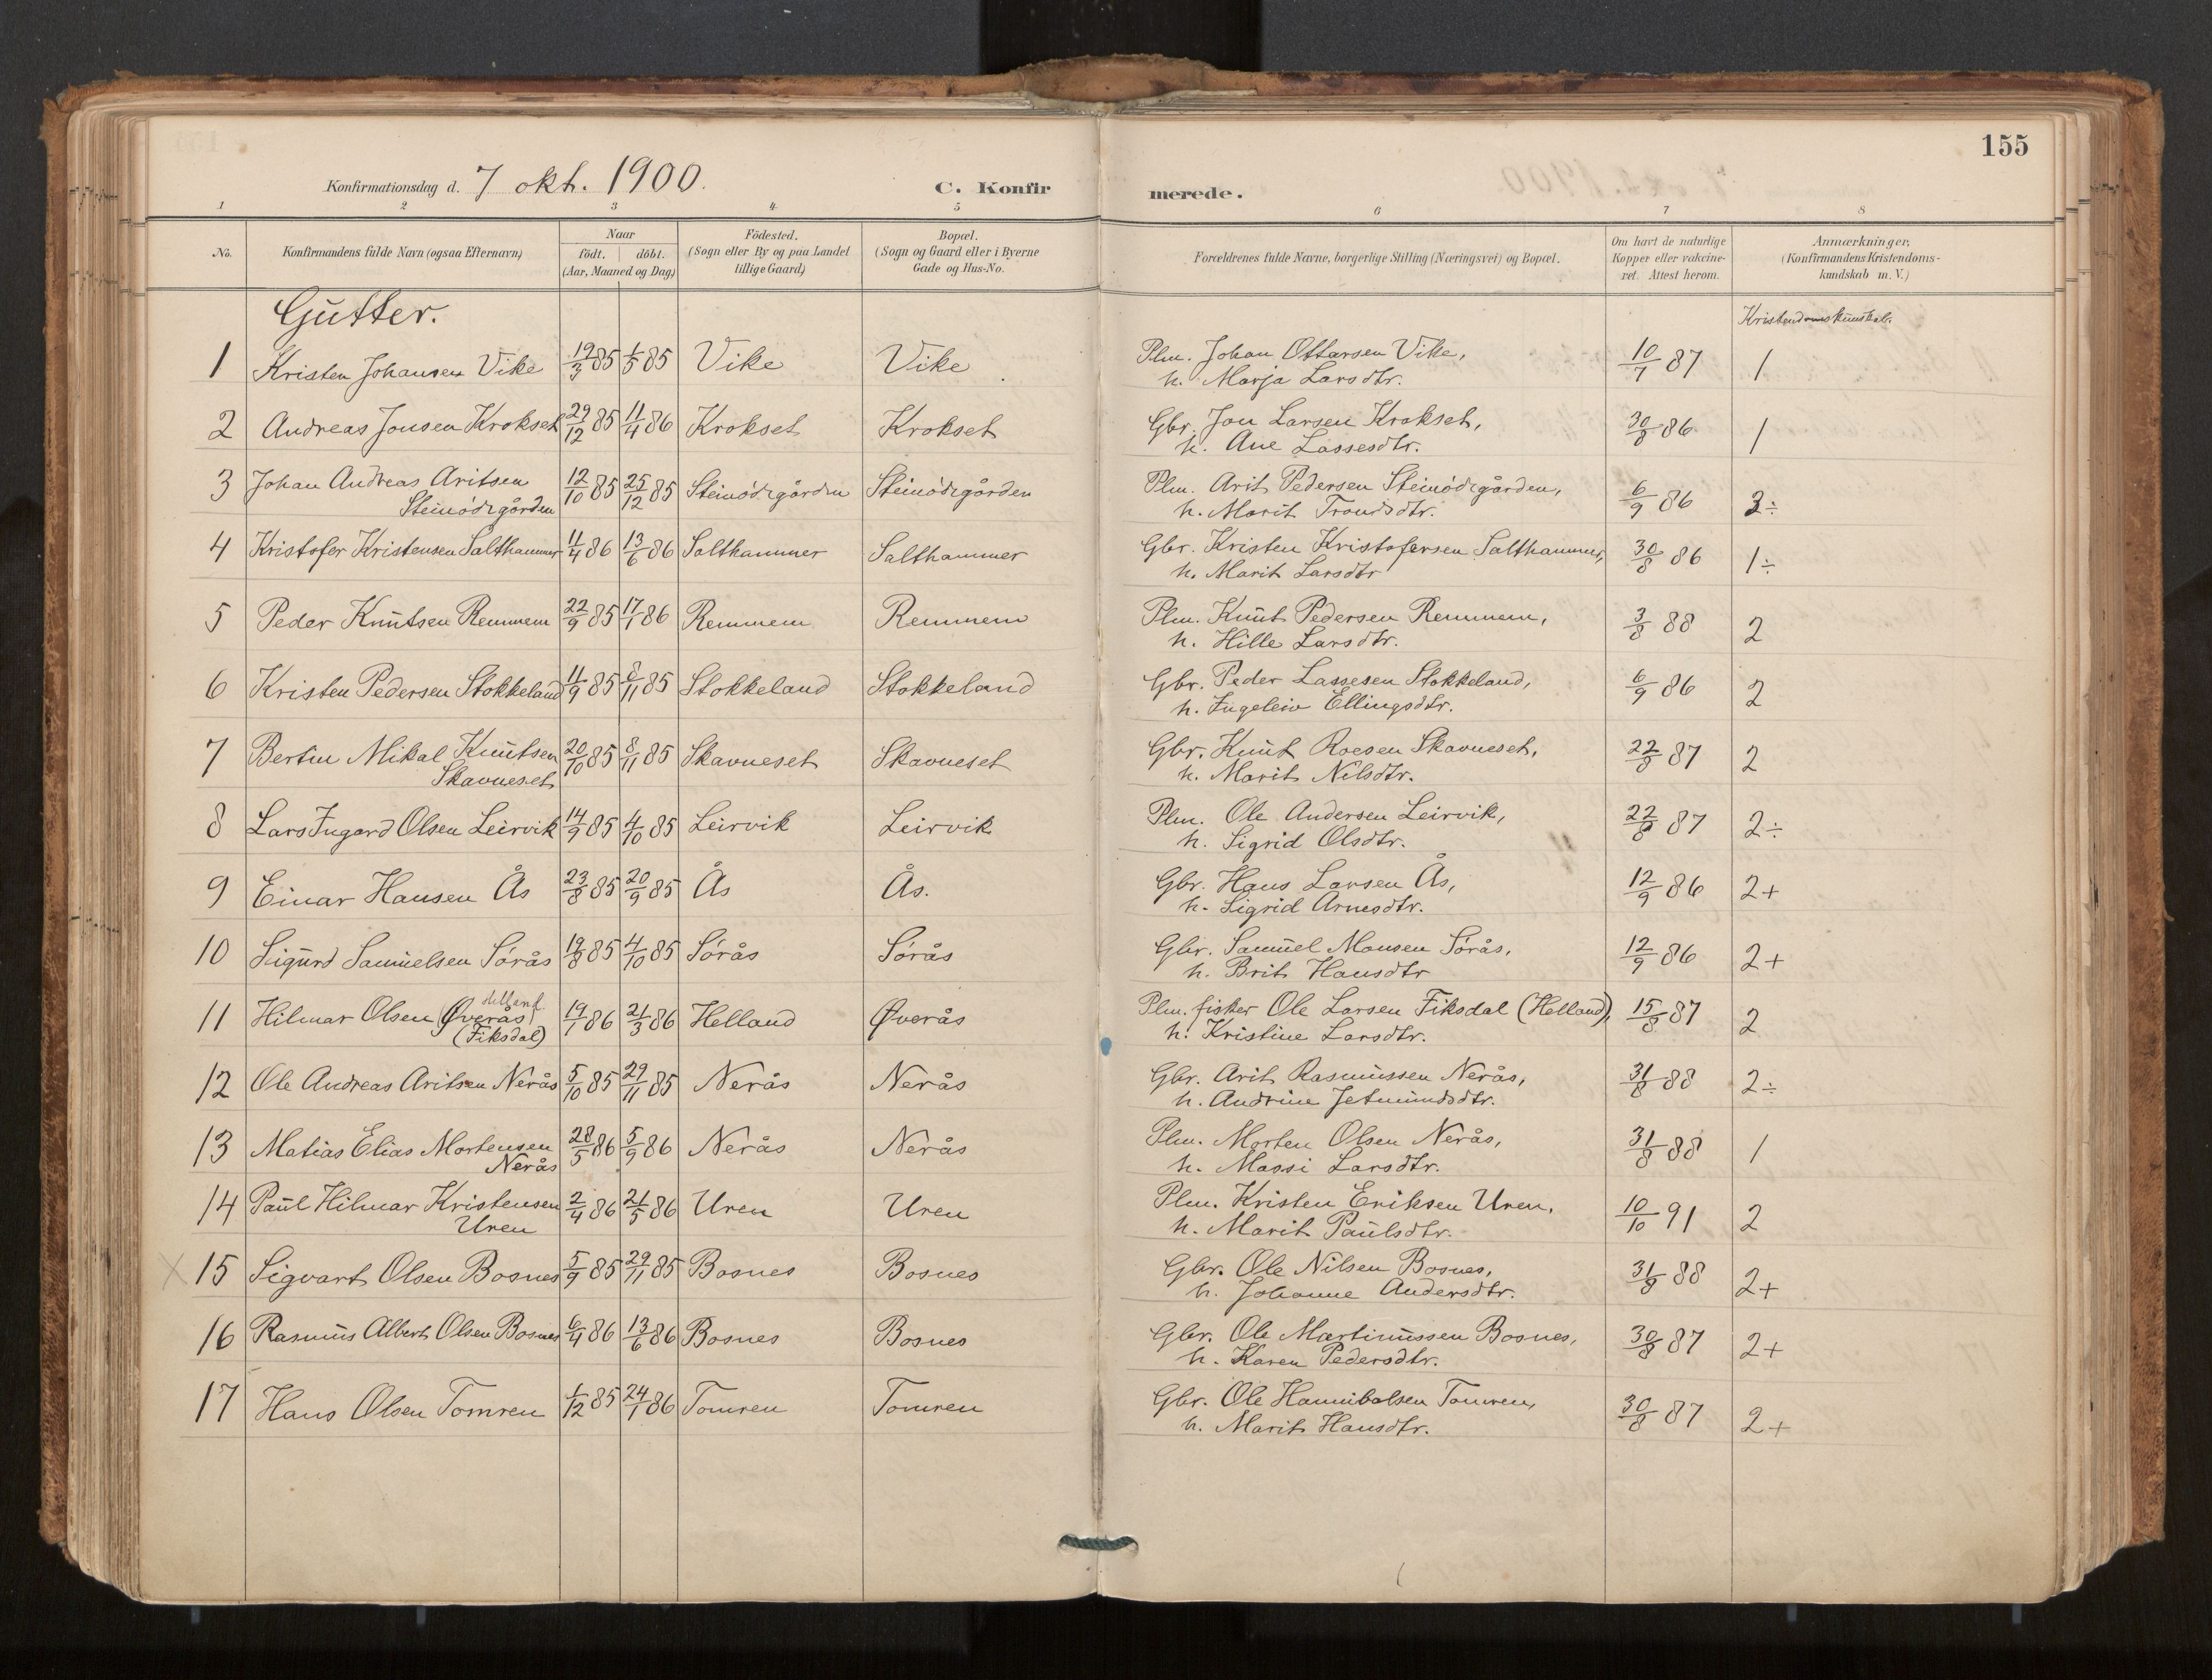 155
Konfirmationsdag d. 7 okt. 1900. C. Konfirmerede.
1 2 3 4 5 6 7 8
No. Konfirmandens fulde Navn (ogsaa Efternavn) Naar födt. döbt. (Aar, Maaned og Dag) Födested. (Sogn eller By og paa Landet tillige Gaard) Bopæl. (Sogn og Gaard eller i Byerne Gade og Hus-No. Forældrenes fulde Navne, borgerlige Stilling (Næringsvei) og Bopæl. Om havt de naturlige Kopper eller vakcineret. Attest herom. Anmærkninger. (Konfirmandens Kristendomskundskab m. V.)
Gutter. Kristendomskunskab.
1 Kristen Johansen Vike 19/3 85 1/5 85 Vike Vike Plm. Johan Ottarsen Vike, 10/7 87 1
h. Marja Larsdtr.
2 Andreas Jonsen Krokset 29/12 85 11/4 86 Krokset Krokset Gbr. Jon Larsen Krokset, 30/8 86 1
h. Ane Lassesdtr.
3 Johan Andreas Aritsen 12/10 85 25/12 85 Steinödegården Steinödegården Plm. Arit Pedersen Steinödegården, 6/9 86 3÷
Steinödegården h. Marit Trondsdtr.
4 Kristofer Kristensen Salthammer 11/4 86 13/6 86 Salthammer Salthammer Gbr. Kristen Kristofersen Salthammer, 30/8 86 1÷
h. Marit Larsdtr
5 Peder Knutsen Remmem 22/9 85 17/1 86 Remmem Remmem Plm. Knut Pedersen Remmem, 3/8 88 2
h. Hille Larsdtr.
6 Kristen Pedersen Stokkeland 11/9 85 8/11 85 Stokkeland Stokkeland Gbr. Peder Lassesen Stokkeland, 6/9 86 2
h. Ingeleiv Ellingsdtr.
7 Bertin Mikal Knutsen 20/10 85 8/11 85 Skavneset Skavneset Gbr. Knut Roesen Skavneset, 22/8 87 2
Skavneset h. Marit Nilsdtr.
8 Lars Ingard Olsen Leirvik 14/9 85 4/10 85 Leirvik Leirvik Plm. Ole Andersen Leirvik, 22/8 87 2÷
h. Sigrid Olsdtr.
9 Einar Hansen Ås 23/8 85 20/9 85 Ås Ås. Gbr. Hans Larsen Ås, 12/9 86 2+
h. Sigrid Arnesdtr.
10 Sigurd Samuelsen Sörås 19/8 85 4/10 85 Sörås Sörås Gbr. Samuel Monsen Sörås, 12/9 86 2+
h. Brit Hansdtr
Helland
11 Hilmar Olsen (Øverås) 19/1 86 21/3 86 Helland Øverås Plm. fisker Ole Larsen Fiksdal (Helland), 15/8 87 2
(Fiksdal) h. Kristine Larsdtr.
12 Ole Andreas Aritsen Nerås 5/10 85 29/11 85 Nerås Nerås Gbr. Arit Rasmussen Nerås, 31/8 88 2÷
h. Andrine Jetmundsdtr.
13 Matias Elias Mortensen 28/5 86 5/9 86 Nerås Nerås Plm. Morten Olsen Nerås, 31/8 88 1
Nerås h. Massi Larsdtr.
14 Paul Hilmar Kristensen 2/4 86 21/5 86 Uren Uren Plm. Kristen Eriksen Uren, 10/10 91 2
Uren h. Marit Paulsdtr.
X 15 Sigvart Olsen Bosnes 5/9 85 29/11 85 Bosnes Bosnes Gbr. Ole Nilsen Bosnes, 31/8 88 2+
h. Johanne Andersdtr.
16 Rasmus Albert Olsen Bosnes 6/4 86 13/6 86 Bosnes Bosnes Gbr. Ole Martinussen Bosnes, 30/8 87 2+
h. Karen Pedersdtr.
17 Hans Olsen Tomren 1/12 85 24/1 86 Tomren Tomren Gbr. Ole Hannibalsen Tomren, 30/8 87 2+
h. Marit Hansdtr.